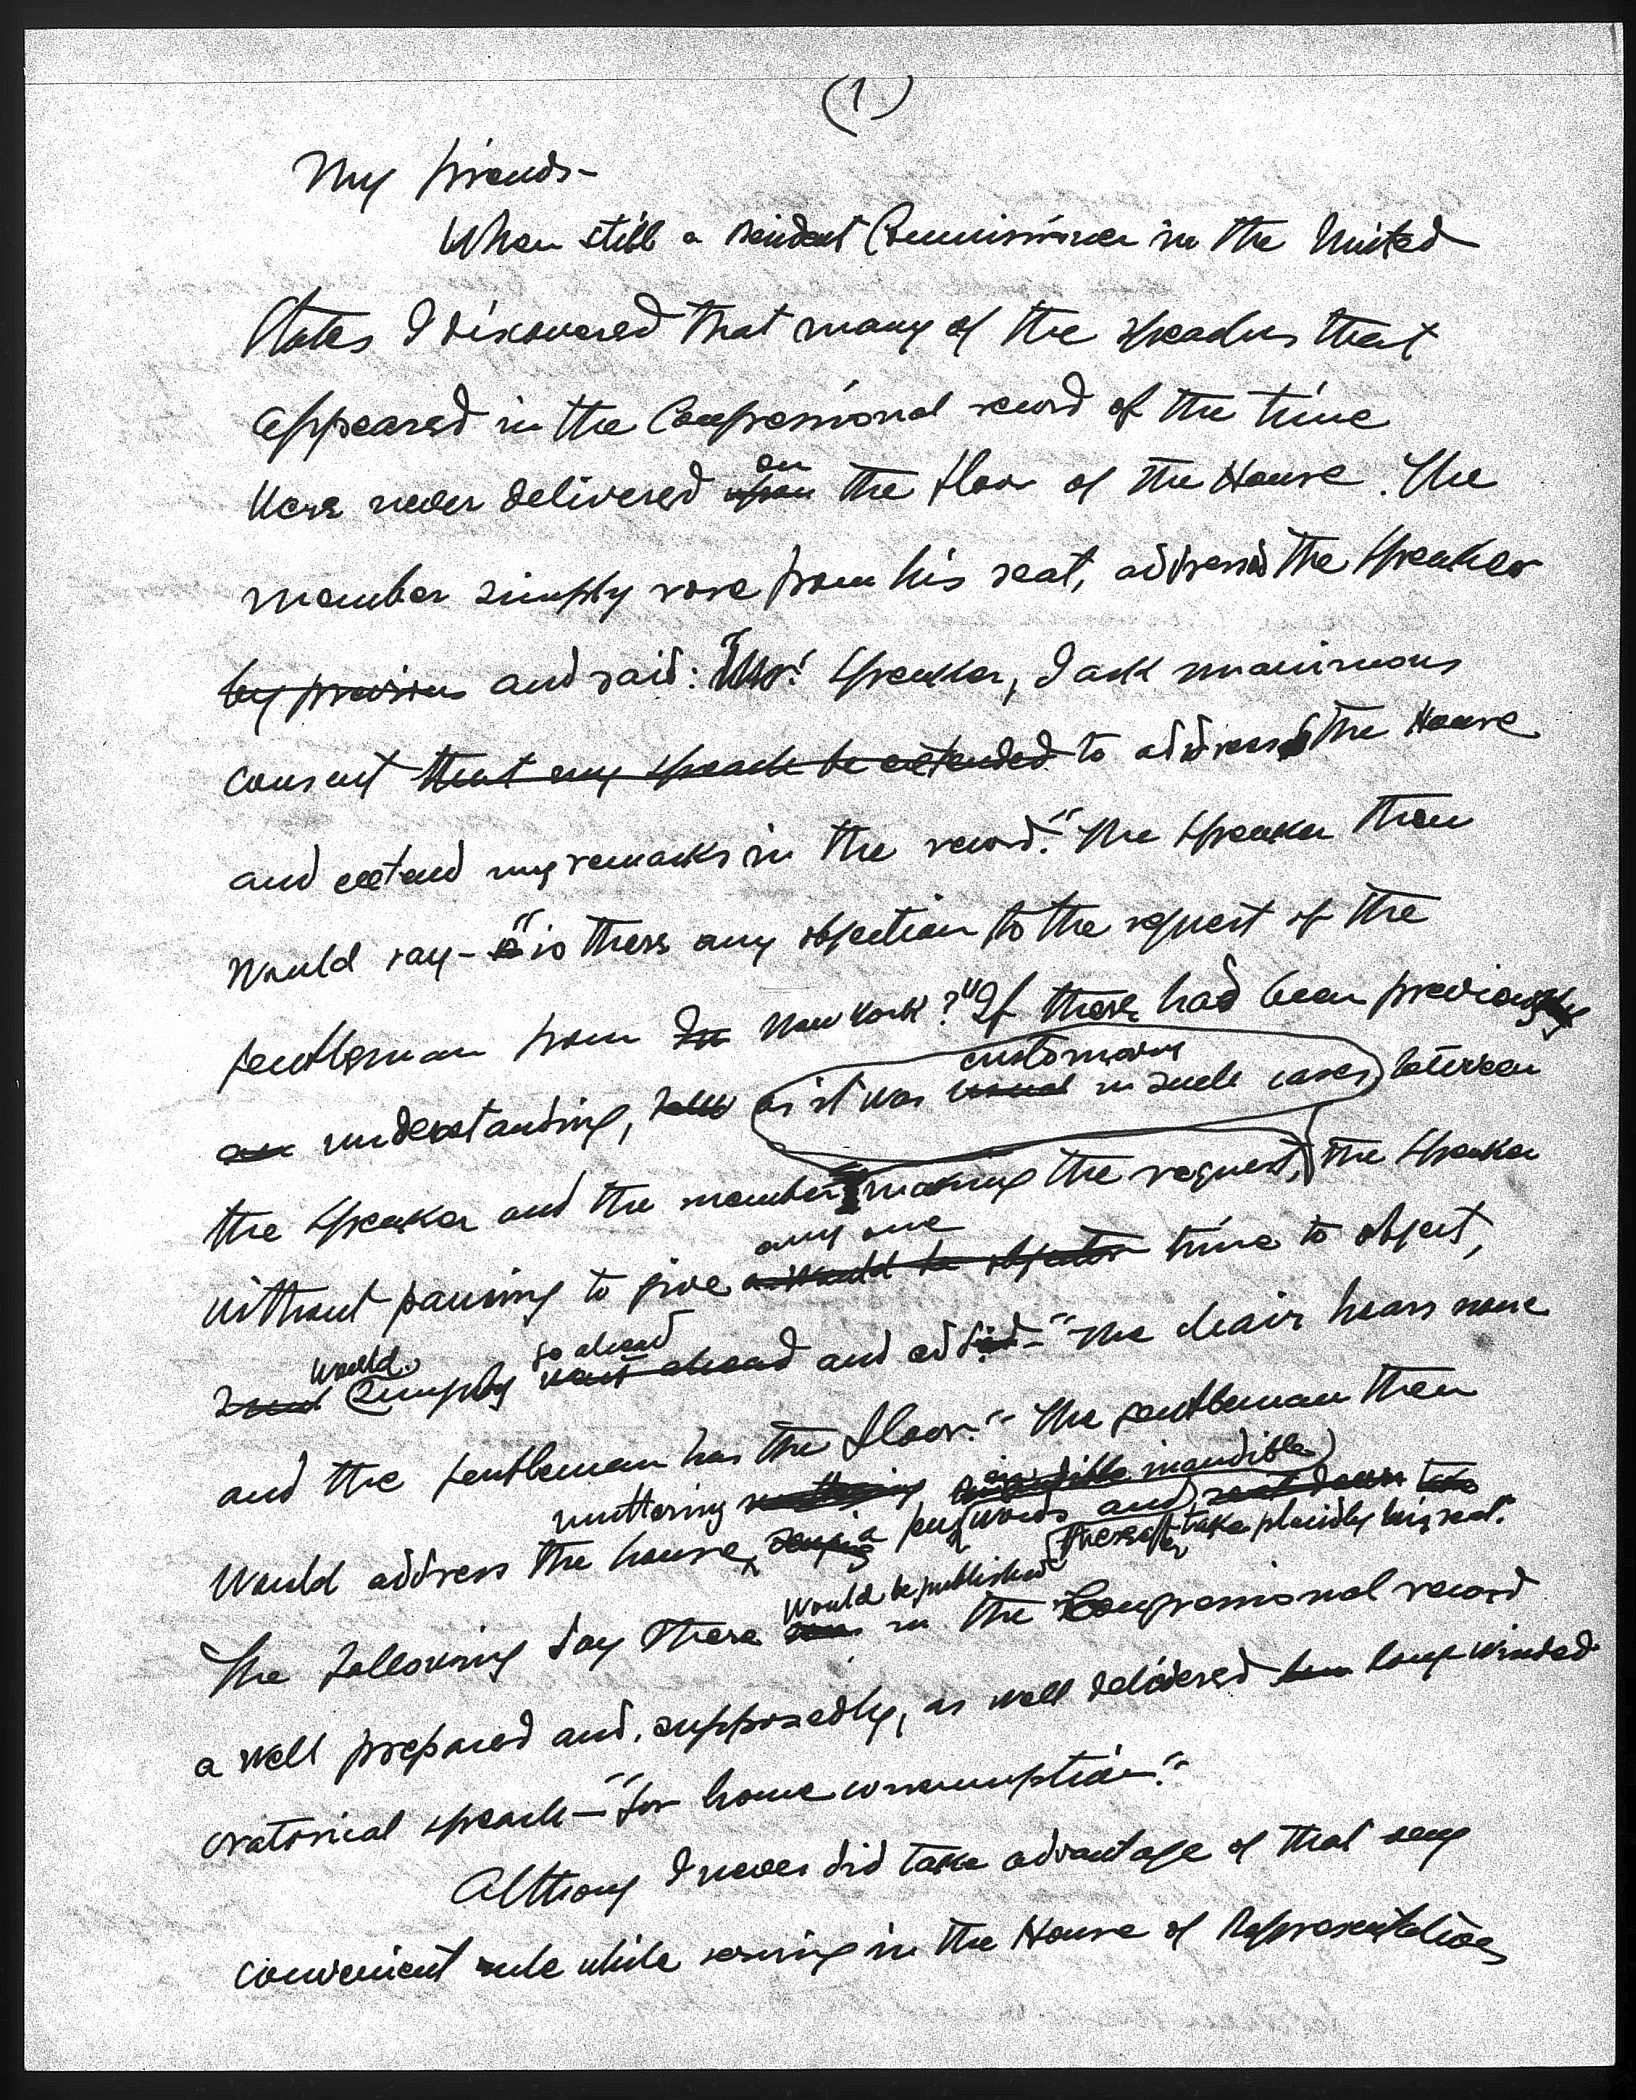 (1)
My friends-
When still a resident Commissioner in the United
States I discovered that many of the speeches that
appeared in the Congressional record of the time
on
were never delivered upon the floor of the House. The
member simply rose from his seat, addressed the Speaker
by previous and said: "Mr. Speaker, I ask unanimous
consent that my speech be extended to address the House
and extend my remarks in the record." The Speaker then
would say- "is there any objection to the request of the
gentleman from New York?" If there had been previously
customary
an understanding, as it was usual in such cases, between
the Speaker and the member making the request, the Speaker
any one
without pausing to give a would be objector time to object,
would go ahead
simply went ahead and add- "The chair hears none
and the gentleman has the floor." The gentleman then
muttering inaudible
would address the house, saying a few words and sat down
thereafter take placidly his seat.
would be published
The following day there was in the Congressional record
a well prepared and, supposedly, as well delivered long winded
oratorical speech- "for home consumption."
Althoug I never did take advantage of that very
convenient rule while serving in the House of Representatives